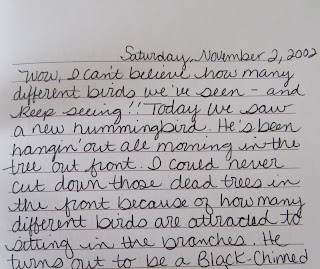 Saturday, November 2, 2002
Wow, I can't believe how many
different birds we've seen - and
keep seeing!! Today we saw
a new hummingbird. He's been
hangin' out all morning in the
tree out front. I could never
cut down those dead trees in
the front because of how many
different birds are attracted to
sitting in the branches. He
turns out to be a Black-Chinned